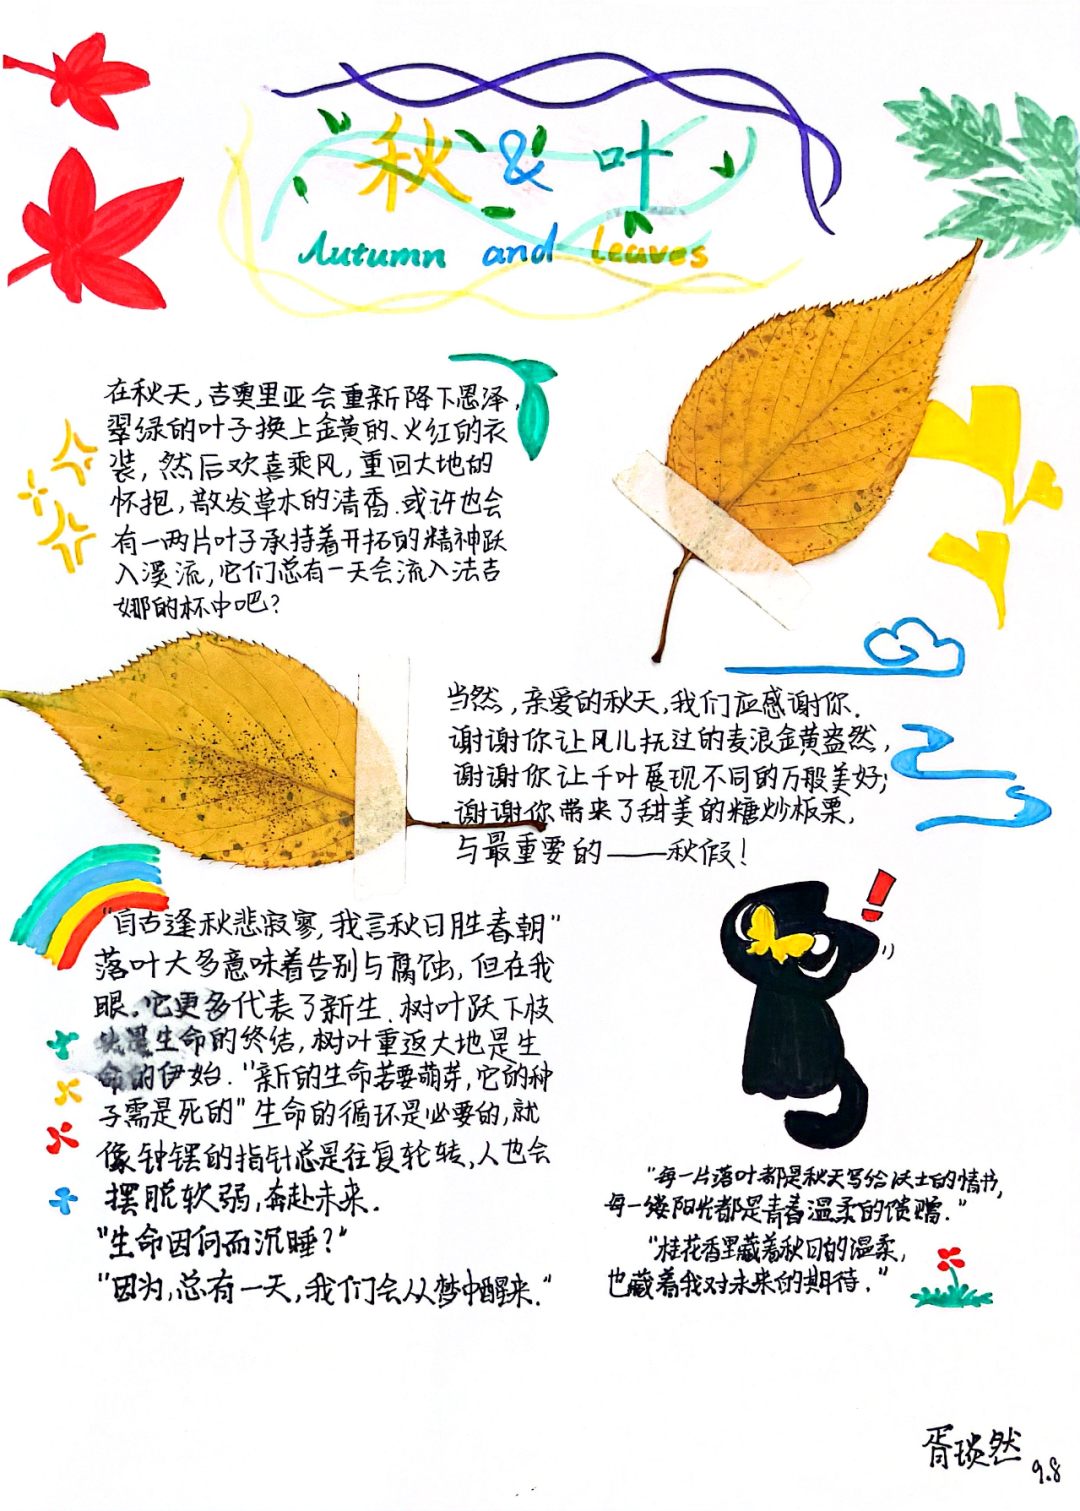 秋 & 叶
Autumn and leaves
在秋天，吉奥里亚会重新降下恩泽，
翠绿的叶子换上金黄的、火红的衣
装，然后欢喜乘风，重回大地的
怀抱，散发草木的清香.或许也会
有一两片叶子承持着开拓的精神跃
入溪流，它们总有一天会流入法吉
娜的杯中吧？
当然，亲爱的秋天，我们应感谢你.
谢谢你让风儿抚过的麦浪金黄盎然，
谢谢你让千叶展现不同的万般美好；
谢谢你带来了甜美的糖炒板栗，
与最重要的——秋假！
"自古逢秋悲寂寥，我言秋日胜春朝"
落叶大多意味着告别与腐蚀，但在我
眼.它更多代表了新生.树叶跃下枝
头是生命的终结，树叶重返大地是生
命的伊始."新的生命若要萌芽，它的种
子需是死的"生命的循环是必要的，就
像钟摆的指针总是往复轮转，人也会
摆脱软弱，奔赴未来.
"生命因何而沉睡？"
"因为，总有一天，我们会从梦中醒来."
"每一片落叶都是秋天写给沃土的情书，
每一缕阳光都是青春温柔的馈赠."
"桂花香里藏着秋日的温柔，
也藏着我对未来的期待."
胥琰然
9.8